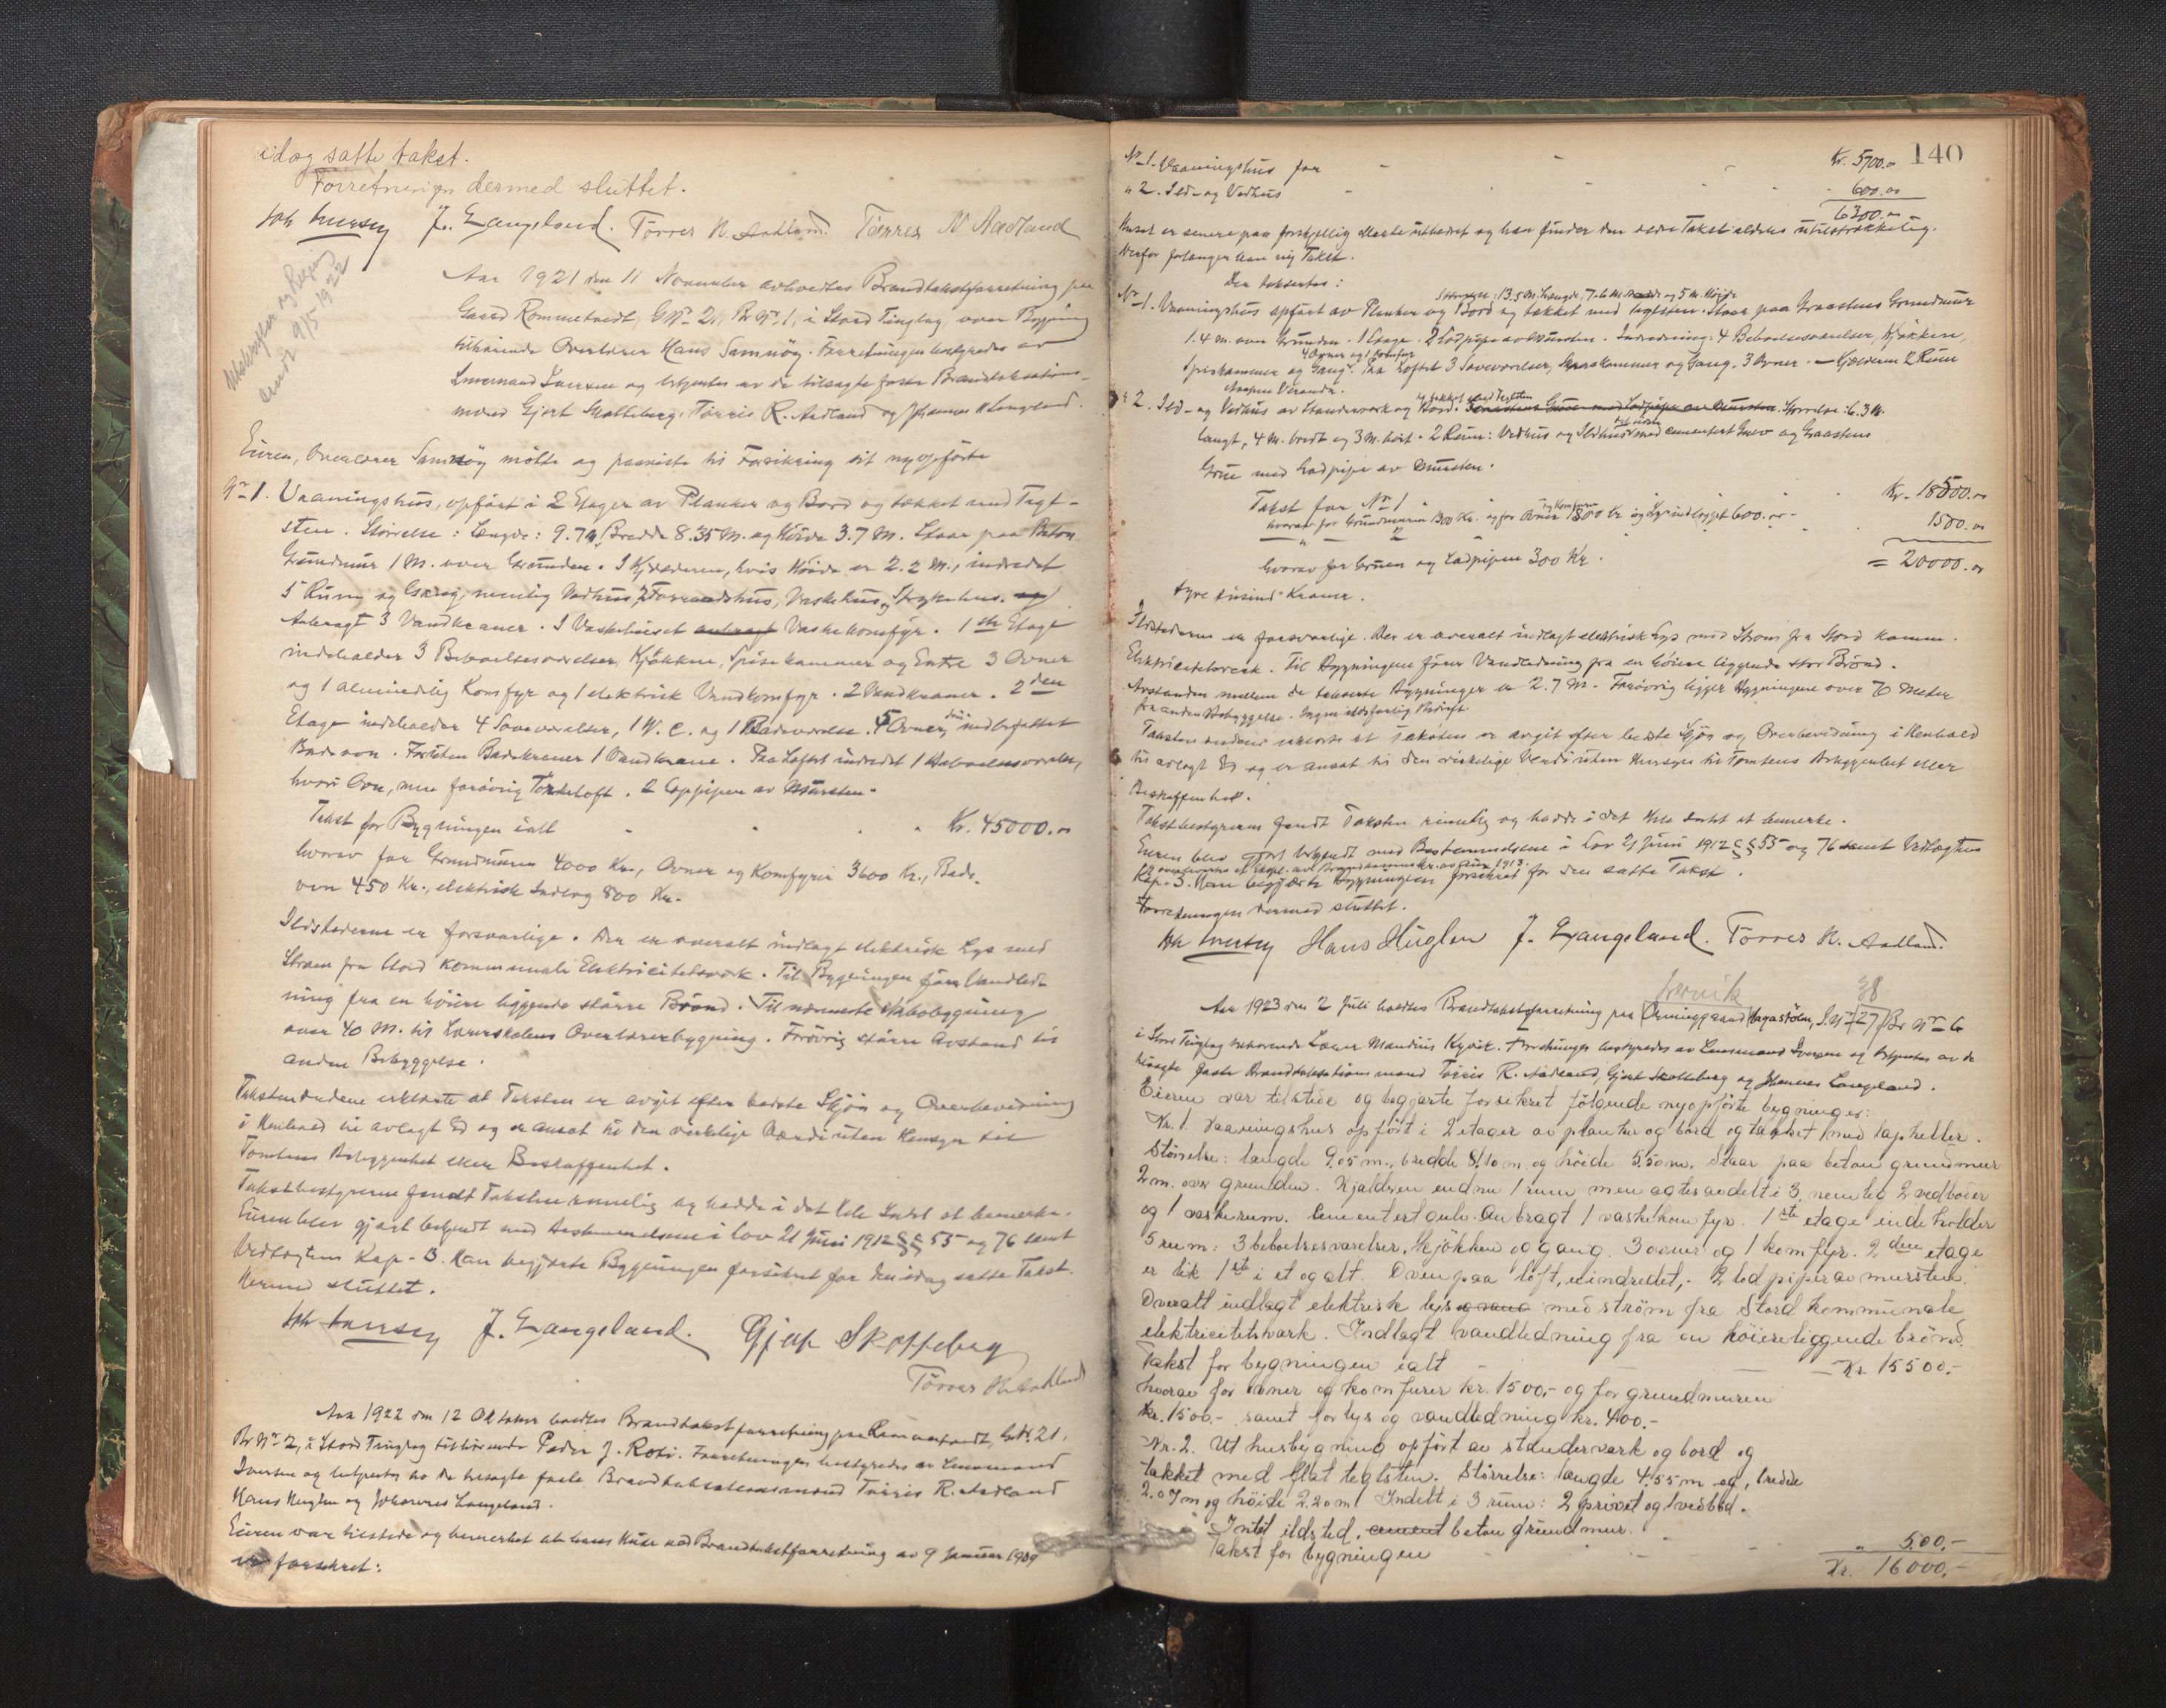 idag satte takst.
Forretningen dermed sluttet.
J. Langeland. Tørres N. Aadland. Tørres N Aadland
Utskrifter og
sendt 9/5 1922
Aar 1921 den 11 November avholdtes Brandtakstforretning paa
Gaard Rommetvedt, G. Nr. 21, Br Nr. 1, i Stord Tinglag, over Bygning
tilhørende Overlærer Hans Samnøy. Forretningen bestyredes av
Lensmand Iversen og betjentes av de tilsagte faste Brandtakstations-
mænd Gjert Skotteberg, Tørris R. Aadland og Johannes Langeland.
Eieren, Overlærer Samnøy møtte og paaviste til Forsikring sit nyopførte
No 1. Vaaningshus, opført i 2 Etager av Planker og Bord og tækket med Tegl-
sten. Størrelse: Længde: 9.7 M, Bredde 8.35 M. og Høide 3.7 M. Staar paa Beton
Grundmur 1 M. over Grunden. I Kjælderen, hvis Høide er 2.2 M., indredet
5 Rum og Gang, nemlig Vedhus, 2 Forraadshus, Vaskehus, Strykehus. og
Anbragt 3 Vandkraner. I Vaskehuset anbragt Vaskekomfyr. 1ste Etage
indeholder 3 Beboelsesværelser, Kjøkken, Spisekammer og Entre 3 Ovner
og 1 almindelig Komfyr og 1 elektrisk Vandkomfyr. 2 Vandkraner. 2den
Etage indeholder 4 Soveværelser, 1 W. C. og 1 Badeværelse. 5 Ovner, deri indbefattet
Badeovn. Foruten Badekraner 1 Vandkrane. Paa Loftet indredet 1 Beboelsesværelse,
hvori Ovn, men forøvrig Tørkeloft. 2 Løppiper av Mursten.
Takst for Bygningen ialt - - - Kr. 45000.00
hvorav for Grundmuren 4000 Kr., Ovner og Komfyrer 3600 Kr., Bade-
ovn 450 Kr., elektrisk Indlæg 800 Kr.
Ildstederne er forsvarlige. Der er overalt indlagt elektrisk Lys med
Strøm fra Stord kommunale Elektricitetsverk. Til Bygningen fører Vandled-
ning fra en høiere liggende større Brønd. Til nærmeste Nabobygning
over 40 M. til Lærerskolens Overlærerbygning. Forøvrig større Avstand til
anden Bebyggelse.
Takstmændene erklærte at Taksten er avgit efter bedste Skjøn og Overbevisning
i Henhold til avlagt Ed og er ansat til den virkelige Værdi uten Hensyn til
Tomtens Beliggenhet eller Beskaffenhet.
Takstbestyreren fandt Taksten rimelig og hadde i det hele Intet at bemerke.
Eieren blev gjort bekjendt med Bestemmelsene i Lov 21 Juni 1912 §§ 55 og 76 samt
Vedtægtens Kap. 3. Han begjærte Bygningen forsikret for den idag satte Takst.
Hermed sluttet.
J. Langeland. Gjert Skotteberg
Tørres N. Aadland
Aar 1922 den 12 Oktober holdtes Brandtakstforretning paa Rommetvedt, G. Nr. 21,
Br Nr. 2, i Stord Tinglag tilhørende Peder J. Roti. Forretningen bestyredes av Lensmand
Iversen og betjentes av de tilsagte faste Brandtakstationsmænd Tørris R. Aadland
Hans Huglen og Johannes Langeland.
Eieren var tilstede og bemerket at hans Huse ved Brandtakstforretning av 9 Januar 1909
er forsikret:
140
No 1. Vaaningshus for - - - Kr. 5700.00
" 2. Ild- og Vedhus - - - 600.00
6300.00
Huset er senere paa forskjellig Maate utbedret og han finder den ældre Takst aldeles utilstrækkelig.
Derfor forlanger han ny Takst.
Der taksertes:
Størrelse: 13.5 M. Længde, 7.6 M. Bredde og 5 M. Høide
No 1. Vaaningshus opført av Planker og Bord og tækket med Teglsten. Staar paa Graastens Grundmur
1.4 M. over Grunden. 1 Etage. 2 Lødpiper av Mursten. Indredning: 4 Beboelsesværelser, Kjøkken,
4 Ovner og 1 Komfyr
Spiskammer og Gang. Paa Loftet 3 Soveværelser, Spiskammer og Gang. 3 Ovner. - Kjælderen 2 Rum
Aapen Veranda.
og tækket med Teglsten
" 2. Ild- og Vedhus av Standerverk og Bord. Graastens Grue med Lødpipe av Mursten. Størrelse: 6.3 M.
langt, 4 M. bredt og 3 M. høit. 2 Rum: Vedhus og Ildhus med cementert Gulv og Graastens
Grue med Lødpipe av Mursten.
Takst for No 1 - - - Kr. 18500.00
og Komfyrer
hvorav for Grundmuren 1300 Kr. og for Ovner 1800 Kr og Lysindlægget 600.00
— " — 2 - - - 1500.00
hvorav for Gruen og Lødpipen 300 Kr. = 20000.00
tyve tusind Kroner.
Ildstederne er forsvarlige. Der er overalt indlagt elektrisk Lys med Strøm fra Stord komm.
Elektricitetsverk. Til Bygningen fører Vandledning fra en høiere liggende stor Brønd.
Avstanden mellem de takserte Bygninger er 2.7 M. Forøvrig ligger Bygningene over 70 Meter
fra anden Bebyggelse. Ingen ildsfarlig Bedrift
Takstmændene erklærte at Taksten er avgit efter bedste Skjøn og Overbevisning i Henhold
til avlagt Ed og er ansat til den virkelige Værdi uten Hensyn til Tomtens Beliggenhet eller
Beskaffenhet.
Takstbestyreren fandt Taksten rimelig og hadde i det Hele Intet at bemerke.
Eieren blev gjort bekjendt med Bestemmelsene i Lov 21 Juni 1912 §§ 55 og 76 samt Vedtægtens
Kap. 3. Han begjærte Bygningen forsikret for den satte Takst.
Forretningen dermed sluttet.
Hans Huglen J. Langeland. Tørres N. Aadland.
Lervik 38
Aar 1923 den 2 Juli holdtes Brandtakstforretning paa Hagaskolen, G. Nr 27, Br Nr. 6
i Stord Tinglag tilhørende Lærer Mandius Kyvik. Forretningen bestyredes av Lensmand Iversen og betjentes av de
tilsagte faste Brandtakstationsmænd Tørris R. Aadland, Gjert Skotteberg og Johannes Langeland.
Eieren var tilstede og begjærte forsikret følgende nyopførte bygninger:
Nr. 1. Vaaningshus opført i 2 etager av planker og bord og tækket med tapheller.
Størrelse: længde 9,05 m., bredde 8,10 m. og høide 5,50 m. Staar paa beton grundmur
2 m. over grunden. Kjælderen endnu 1 rum men agtes avdelt i 3, nemlig 2 vedboder
og 1 vaskerum. Cementert gulv. Anbragt 1 vaskekomfyr. 1ste etage indeholder
5 rum: 3 beboelsesværelser, kjøkken og gang. 3 ovner og 1 komfyr. 2den etage
er lik 1ste i et og alt. Ovenpaa loft, uindredet,- 2 lødpiper av mursten.
Overalt indlagt elektrisk lys med strøm fra Stord kommunale
elektricitetsværk. Indlagt vandledning fra en høiereliggende brønd.
Takst for bygningen ialt - - Kr. 15500,-
hvorav for ovner og komfurer kr. 1500,- og for grundmuren
kr. 1500.- samt for lys og vandledning kr. 400.-
Nr. 2. Uthusbygning opført av standerværk og bord og
tækket med flat teglsten. Størrelse: længde 4.55 m og, bredde
2.07 m og høide 2.20 m. Indelt i 3 rum: 2 privet og 1 vedbod.
Intet ildsted. cement beton grundmur.
Takst for bygningen - - - " 500,-
Kr. 16000,-